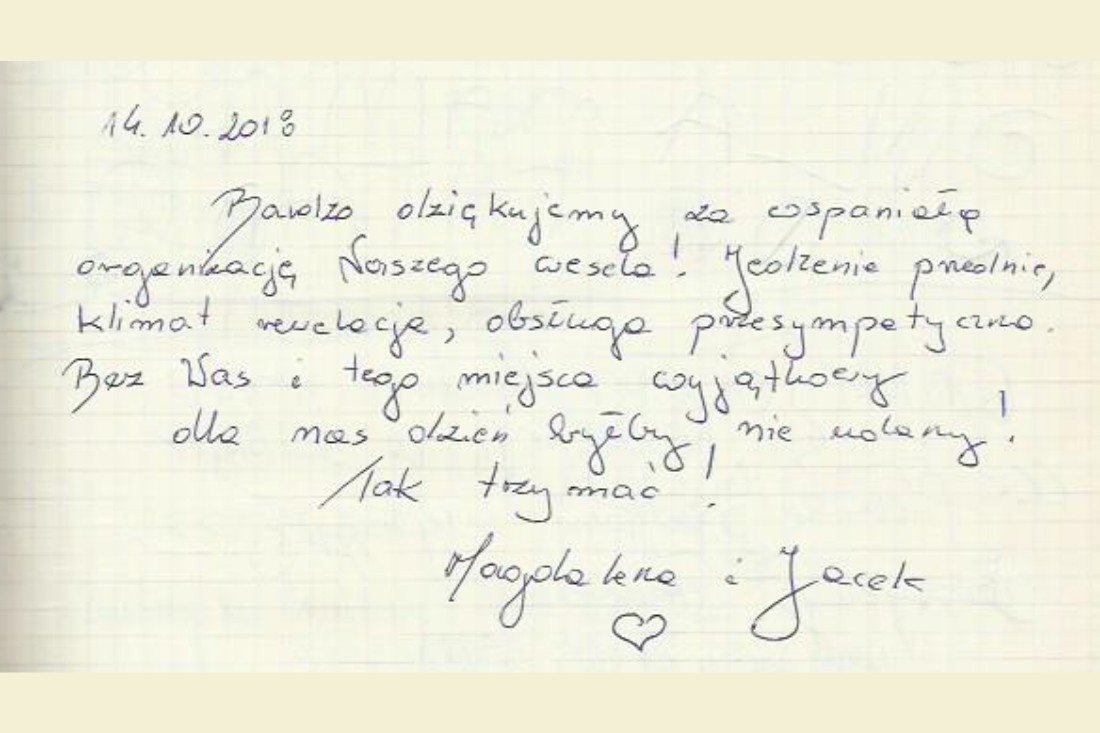 14.10.2018
Bardzo dziękujemy za wspaniałą
organizację Naszego wesela! Jedzenie przednie,
klimat rewelacja, obsługa przesympatyczna.
Bez Was i tego miejsca wyjątkowy
dla nas dzień byłby nie udany!
Tak trzymać!
Magdalena i Jacek